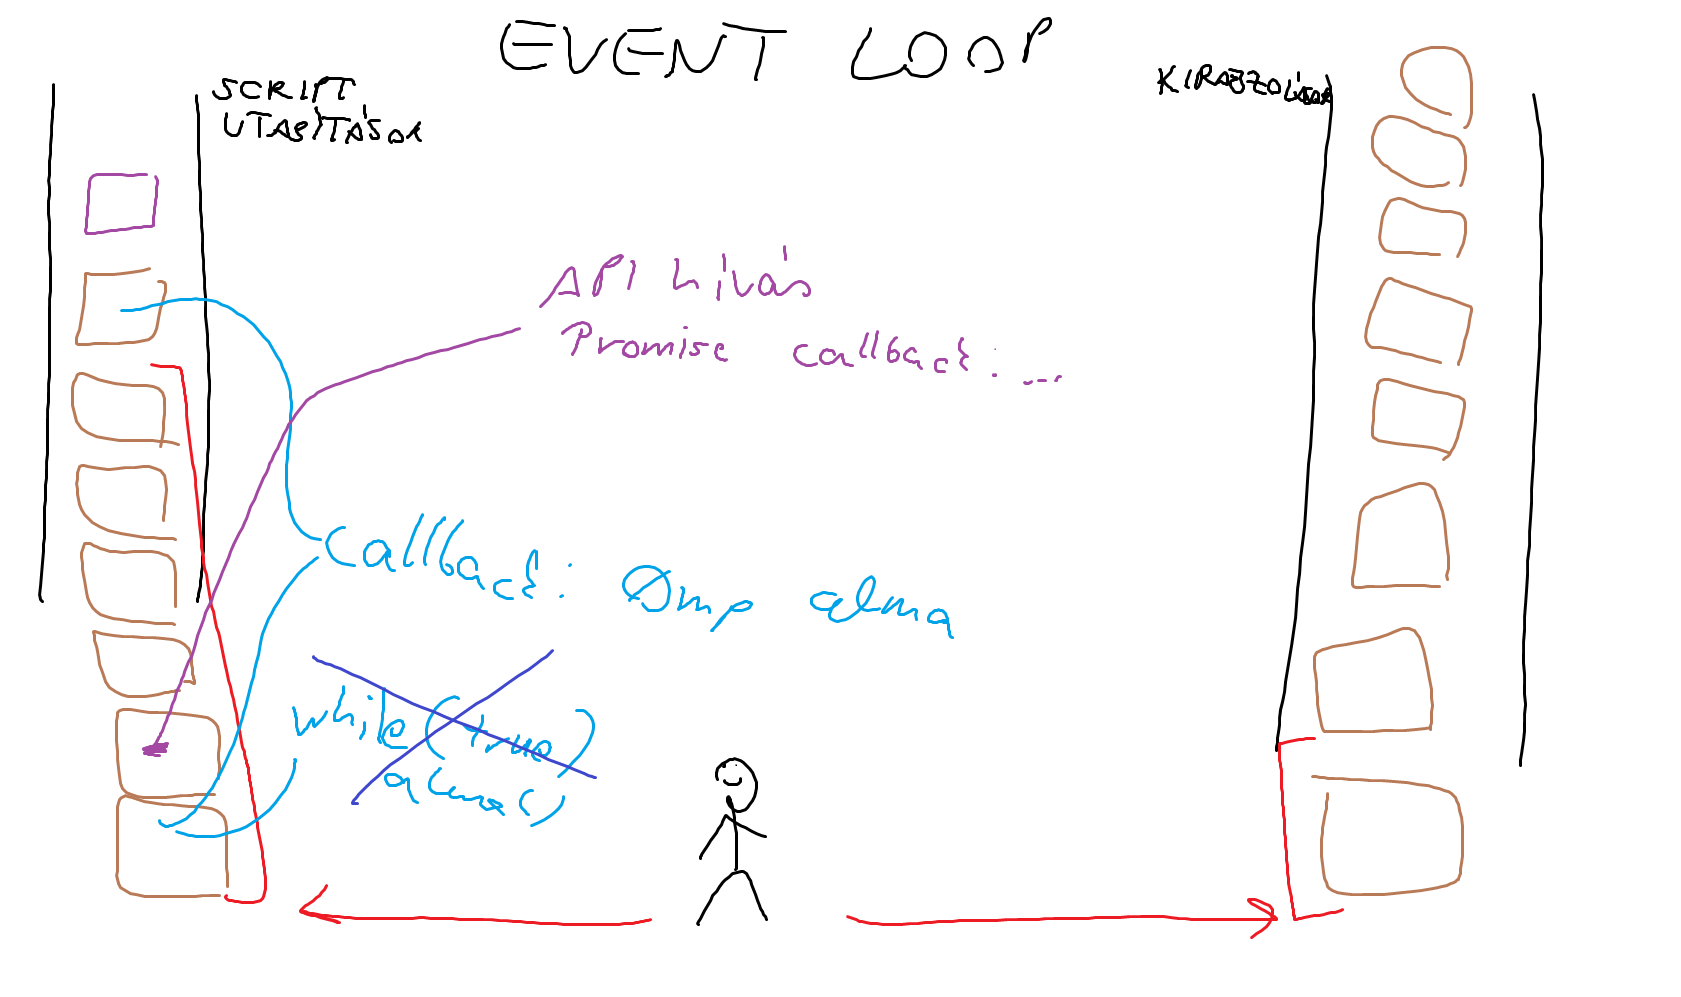 EVENT LOOP
SCRIPT
UTASÍTÁSOK
API hívás
Promise callback: ...
callback: alma
while (true)
alma()